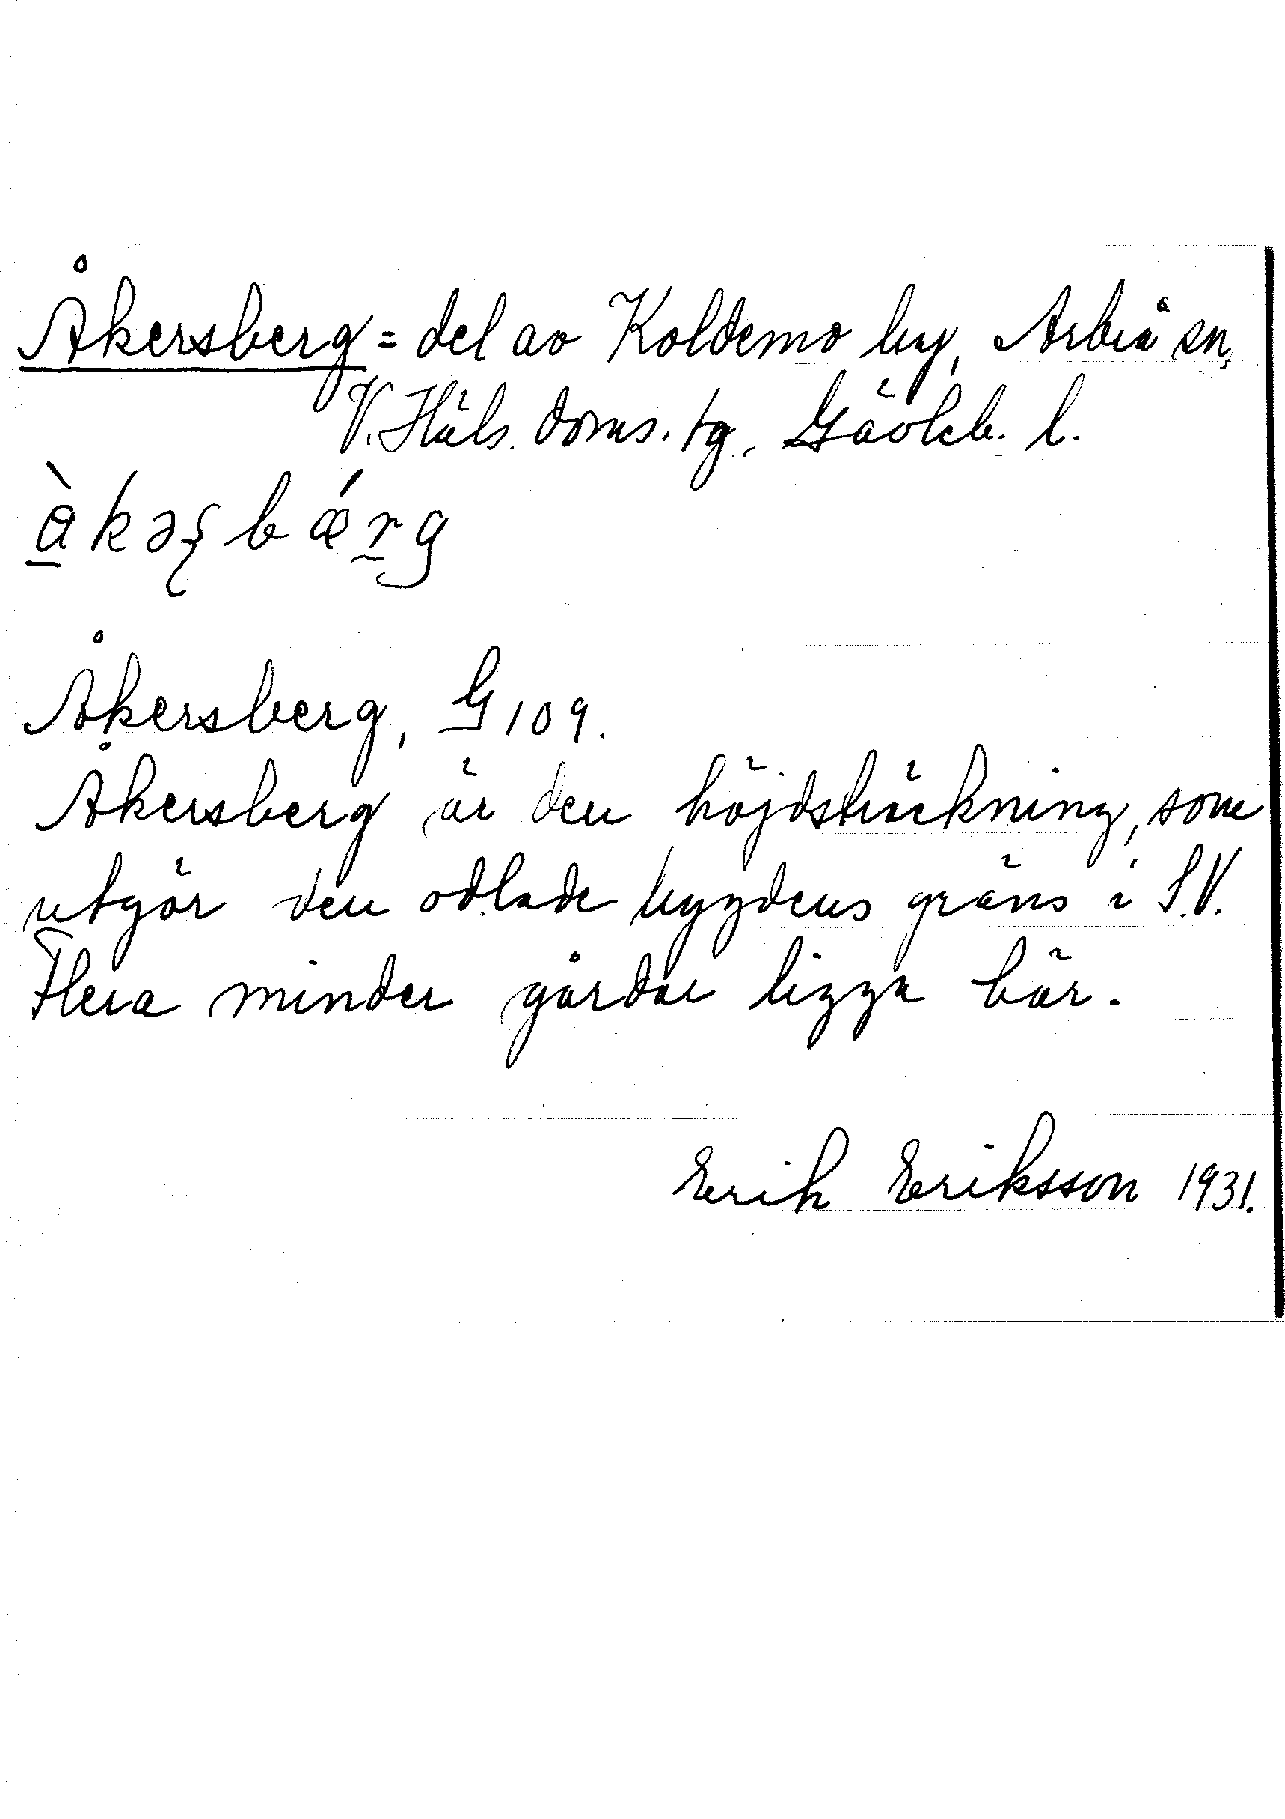 Åkersberg = del av Koldemo by, Arbrå sn,
V. Häls. doms. tg. Gävleb. l.
à̲kəʂbǽr̲g
Åkersberg, G 109.
Åkersberg är den höjdsträckning, som
utgör den odlade bygdens gräns i S.V.
Flera mindre gårdar ligga här.
Erik Eriksson 1931.